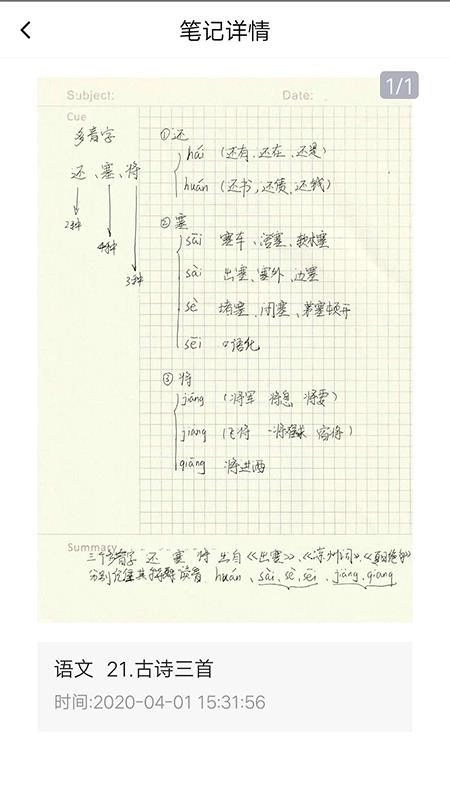 笔记详情
1/1
Subject:
Date:
Cue
多音字
还、塞、将
2种
4种
3种
①还
hái (还有、还在、还是)
huán (还书,还债、还钱)
②塞
sāi 塞车、活塞、软木塞
sài 出塞、塞外、边塞
sè 堵塞、闭塞、茅塞顿开
sēi 口语化
③将
jiāng (将军 将息 将要)
jiàng (飞将 一将
qiāng 将进酒
Summary
三个多音字 还 塞 将 出自《出塞》、《凉州词》、
分别 读音 huán、sài,sè,sēi、jiāng,qiang
语文 21.古诗三首
时间:2020-04-01 15:31:56